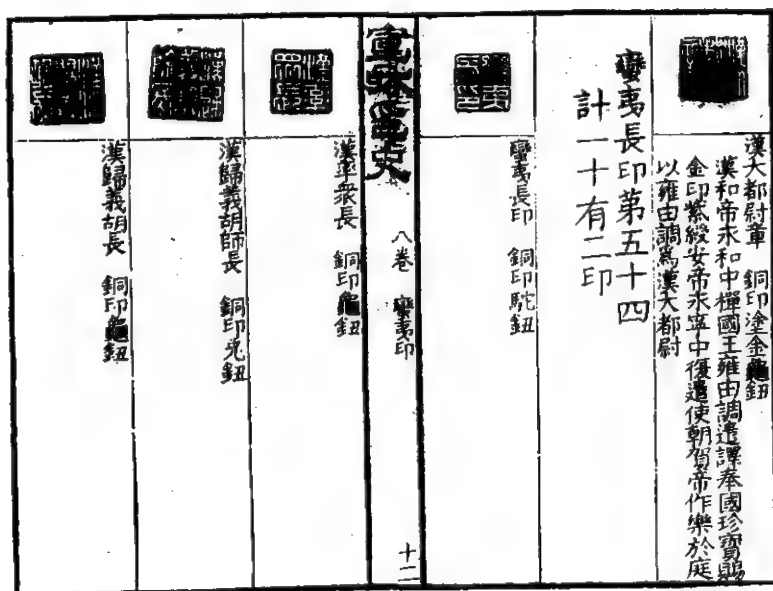 漢大都尉章　銅印塗金龜鈕
漢和帝永和中檀國王雍由調遣譯奉國珍寶賜
金印紫綬安帝永寧中復遣使朝賀帝作樂於庭
以雍由調爲漢大都尉
蠻夷長印第五十四
計一十有二印
蠻夷長印　銅印駝鈕
八卷　蠻夷印
十二
漢率衆長　銅印龜鈕
漢歸義胡師長　銅印兎鈕
漢歸義胡長　銅印龜鈕